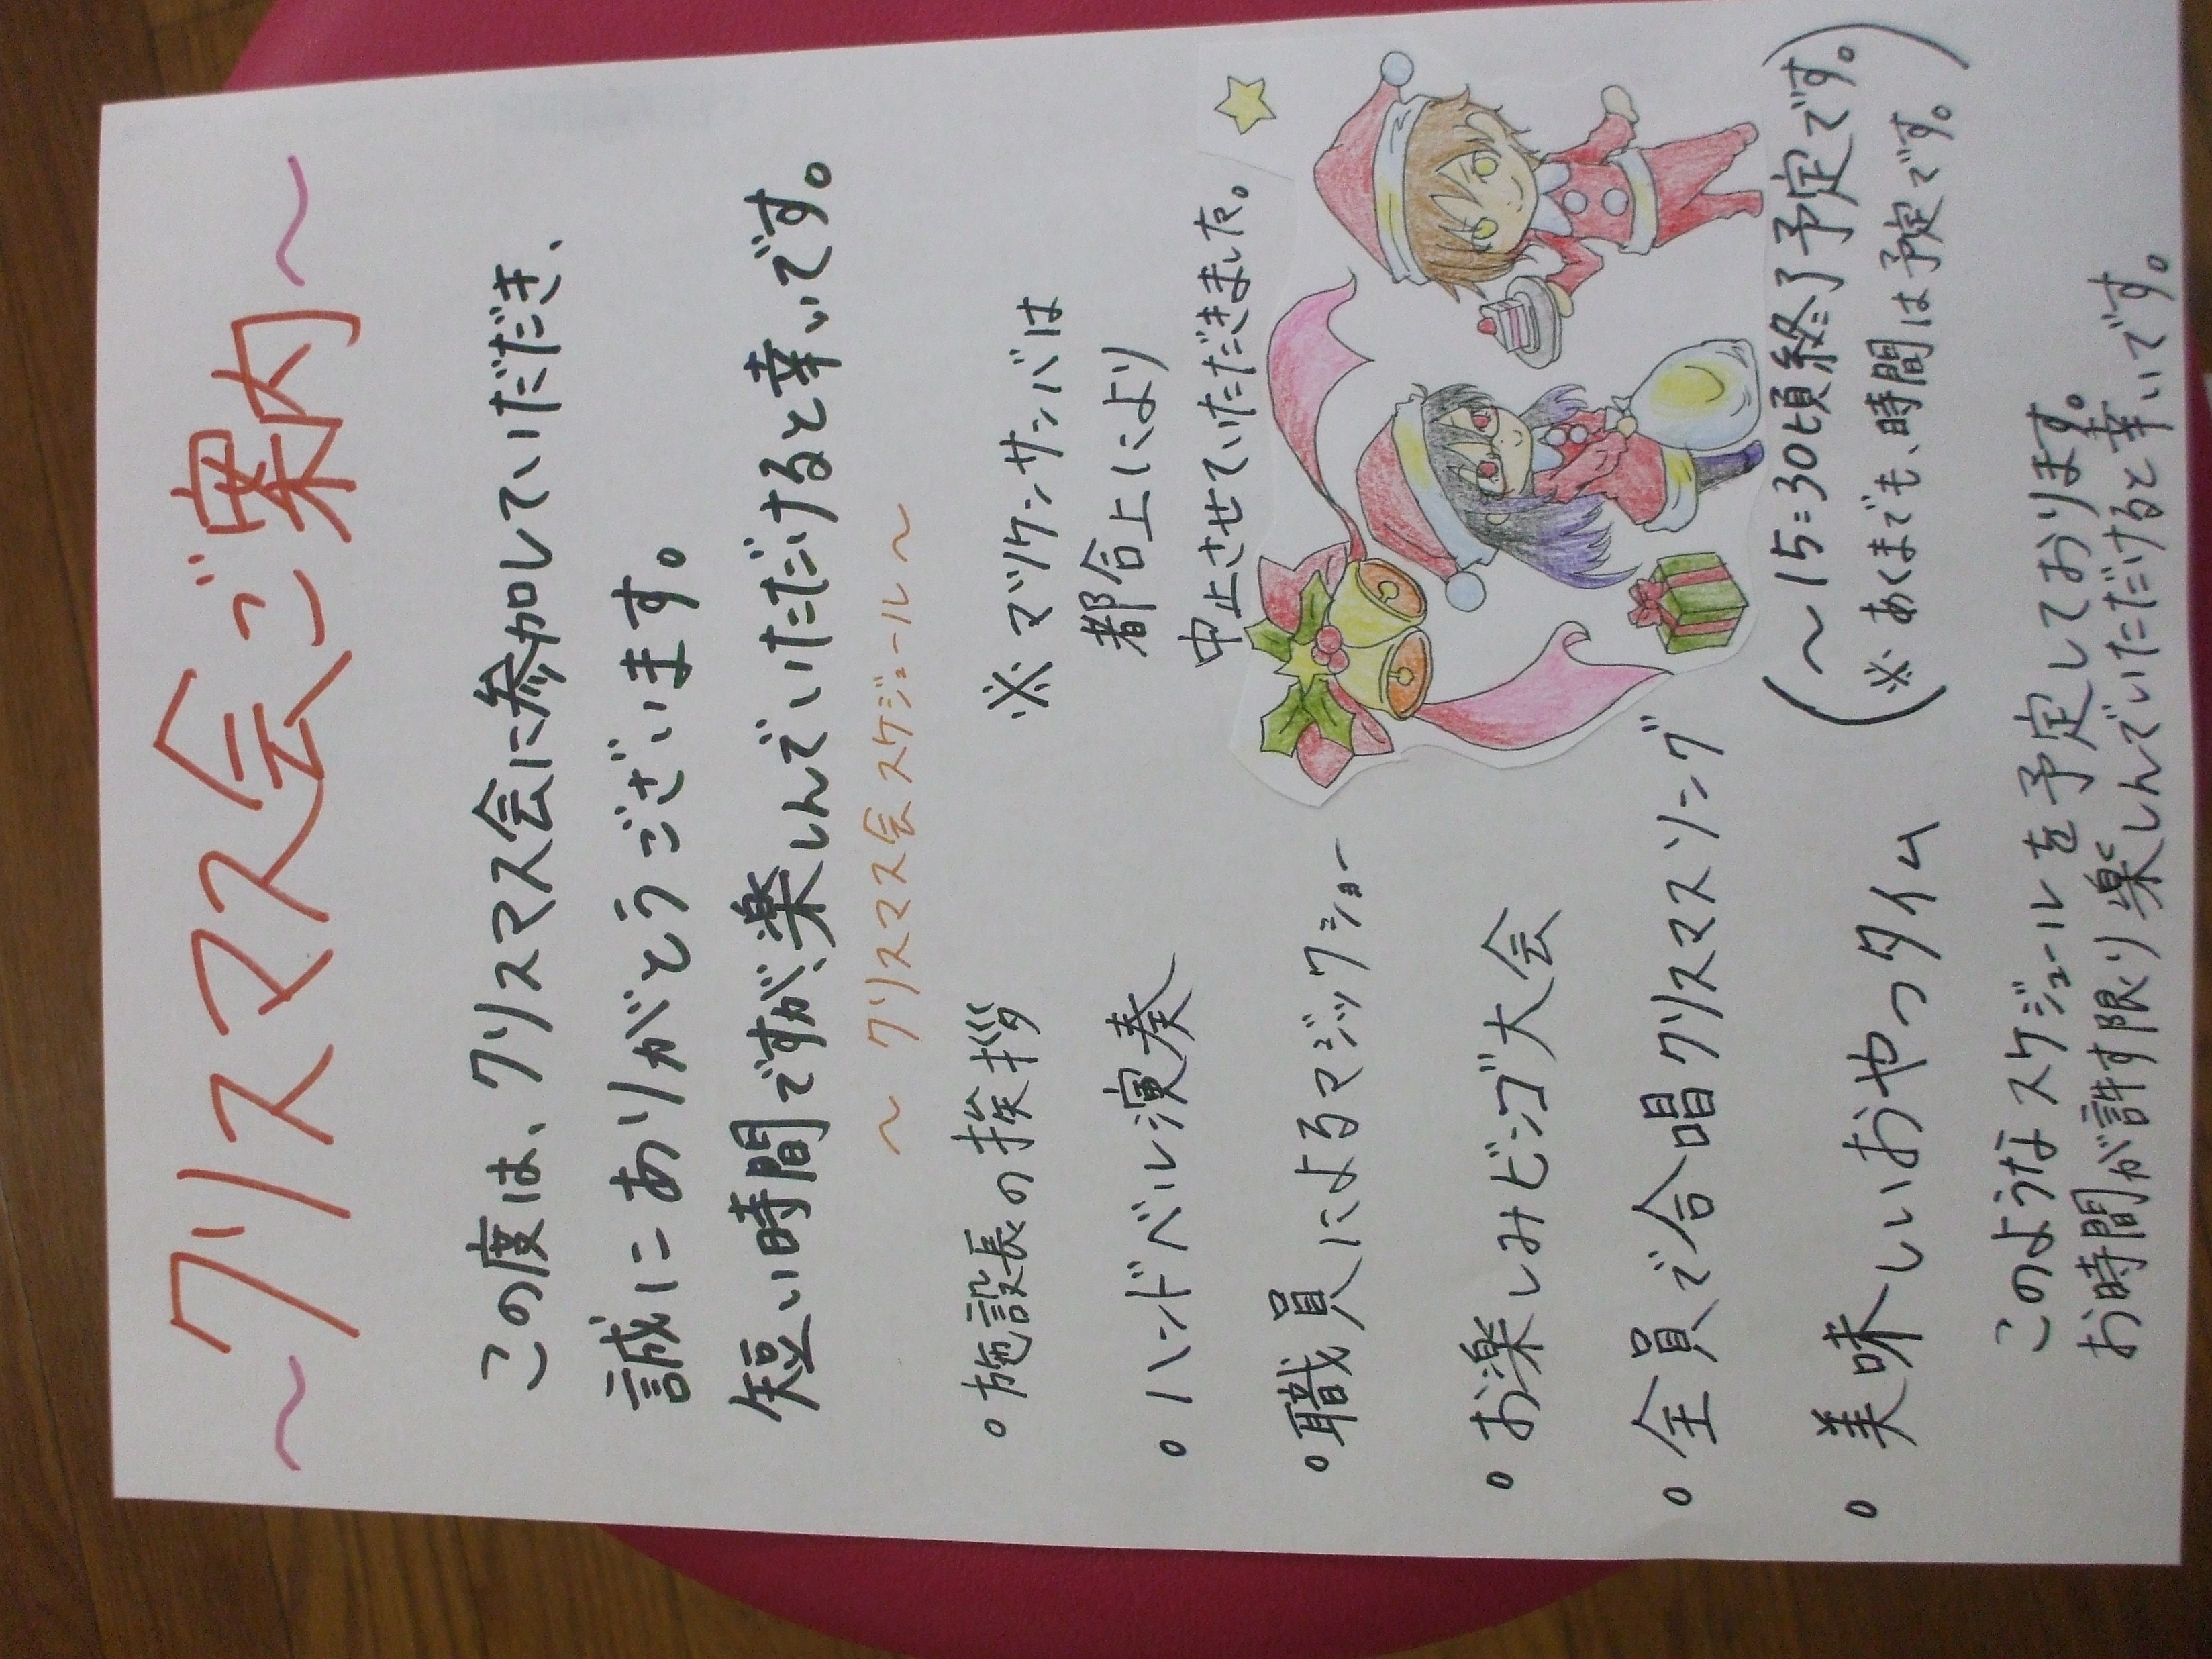 ～クリスマス会ご案内～
この度は、クリスマス会に参加していただき、
誠にありがとうございます。
短い時間ですが、楽しんでいただけると幸いです。
～クリスマス会スケジュール～
。施設長の挨拶
※マツケンサンバは
都合上により
中止させていただきました。
。ハンドベル演奏
。職員によるマジックショー
。お楽しみビンゴ大会
。全員で合唱クリスマスソング
。美味しいおやつタイム
(～15:30頃終了予定です。
※あくまでも、時間は予定です。)
このようなスケジュールを予定しております。
お時間が許す限り楽しんでいただけると幸いです。